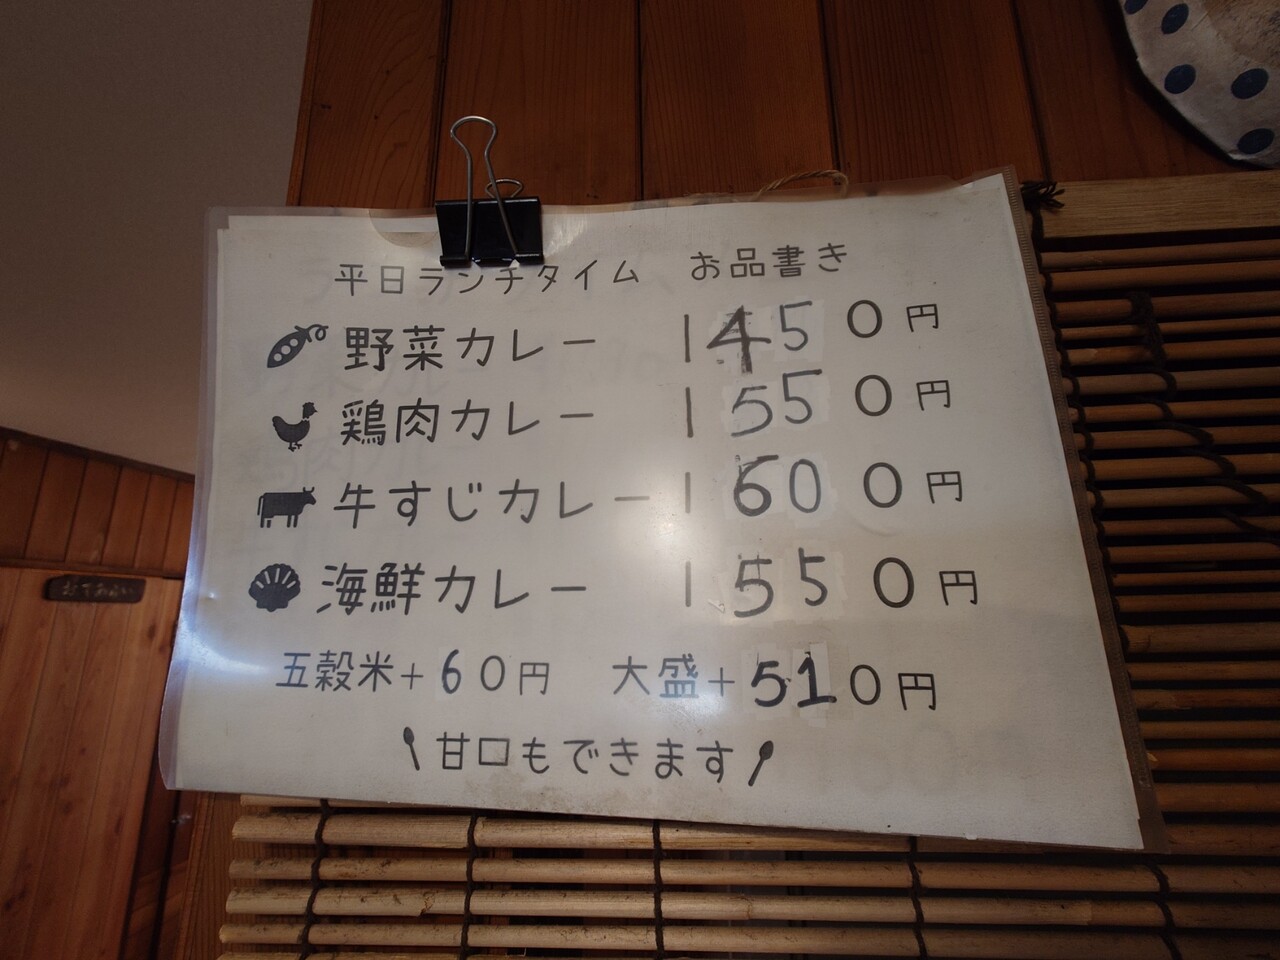 平日ランチタイム お品書き
野菜カレー 1450円
鶏肉カレー 1550円
牛すじカレー 1600円
海鮮カレー 1550円
五穀米+60円 大盛+510円
甘口もできます